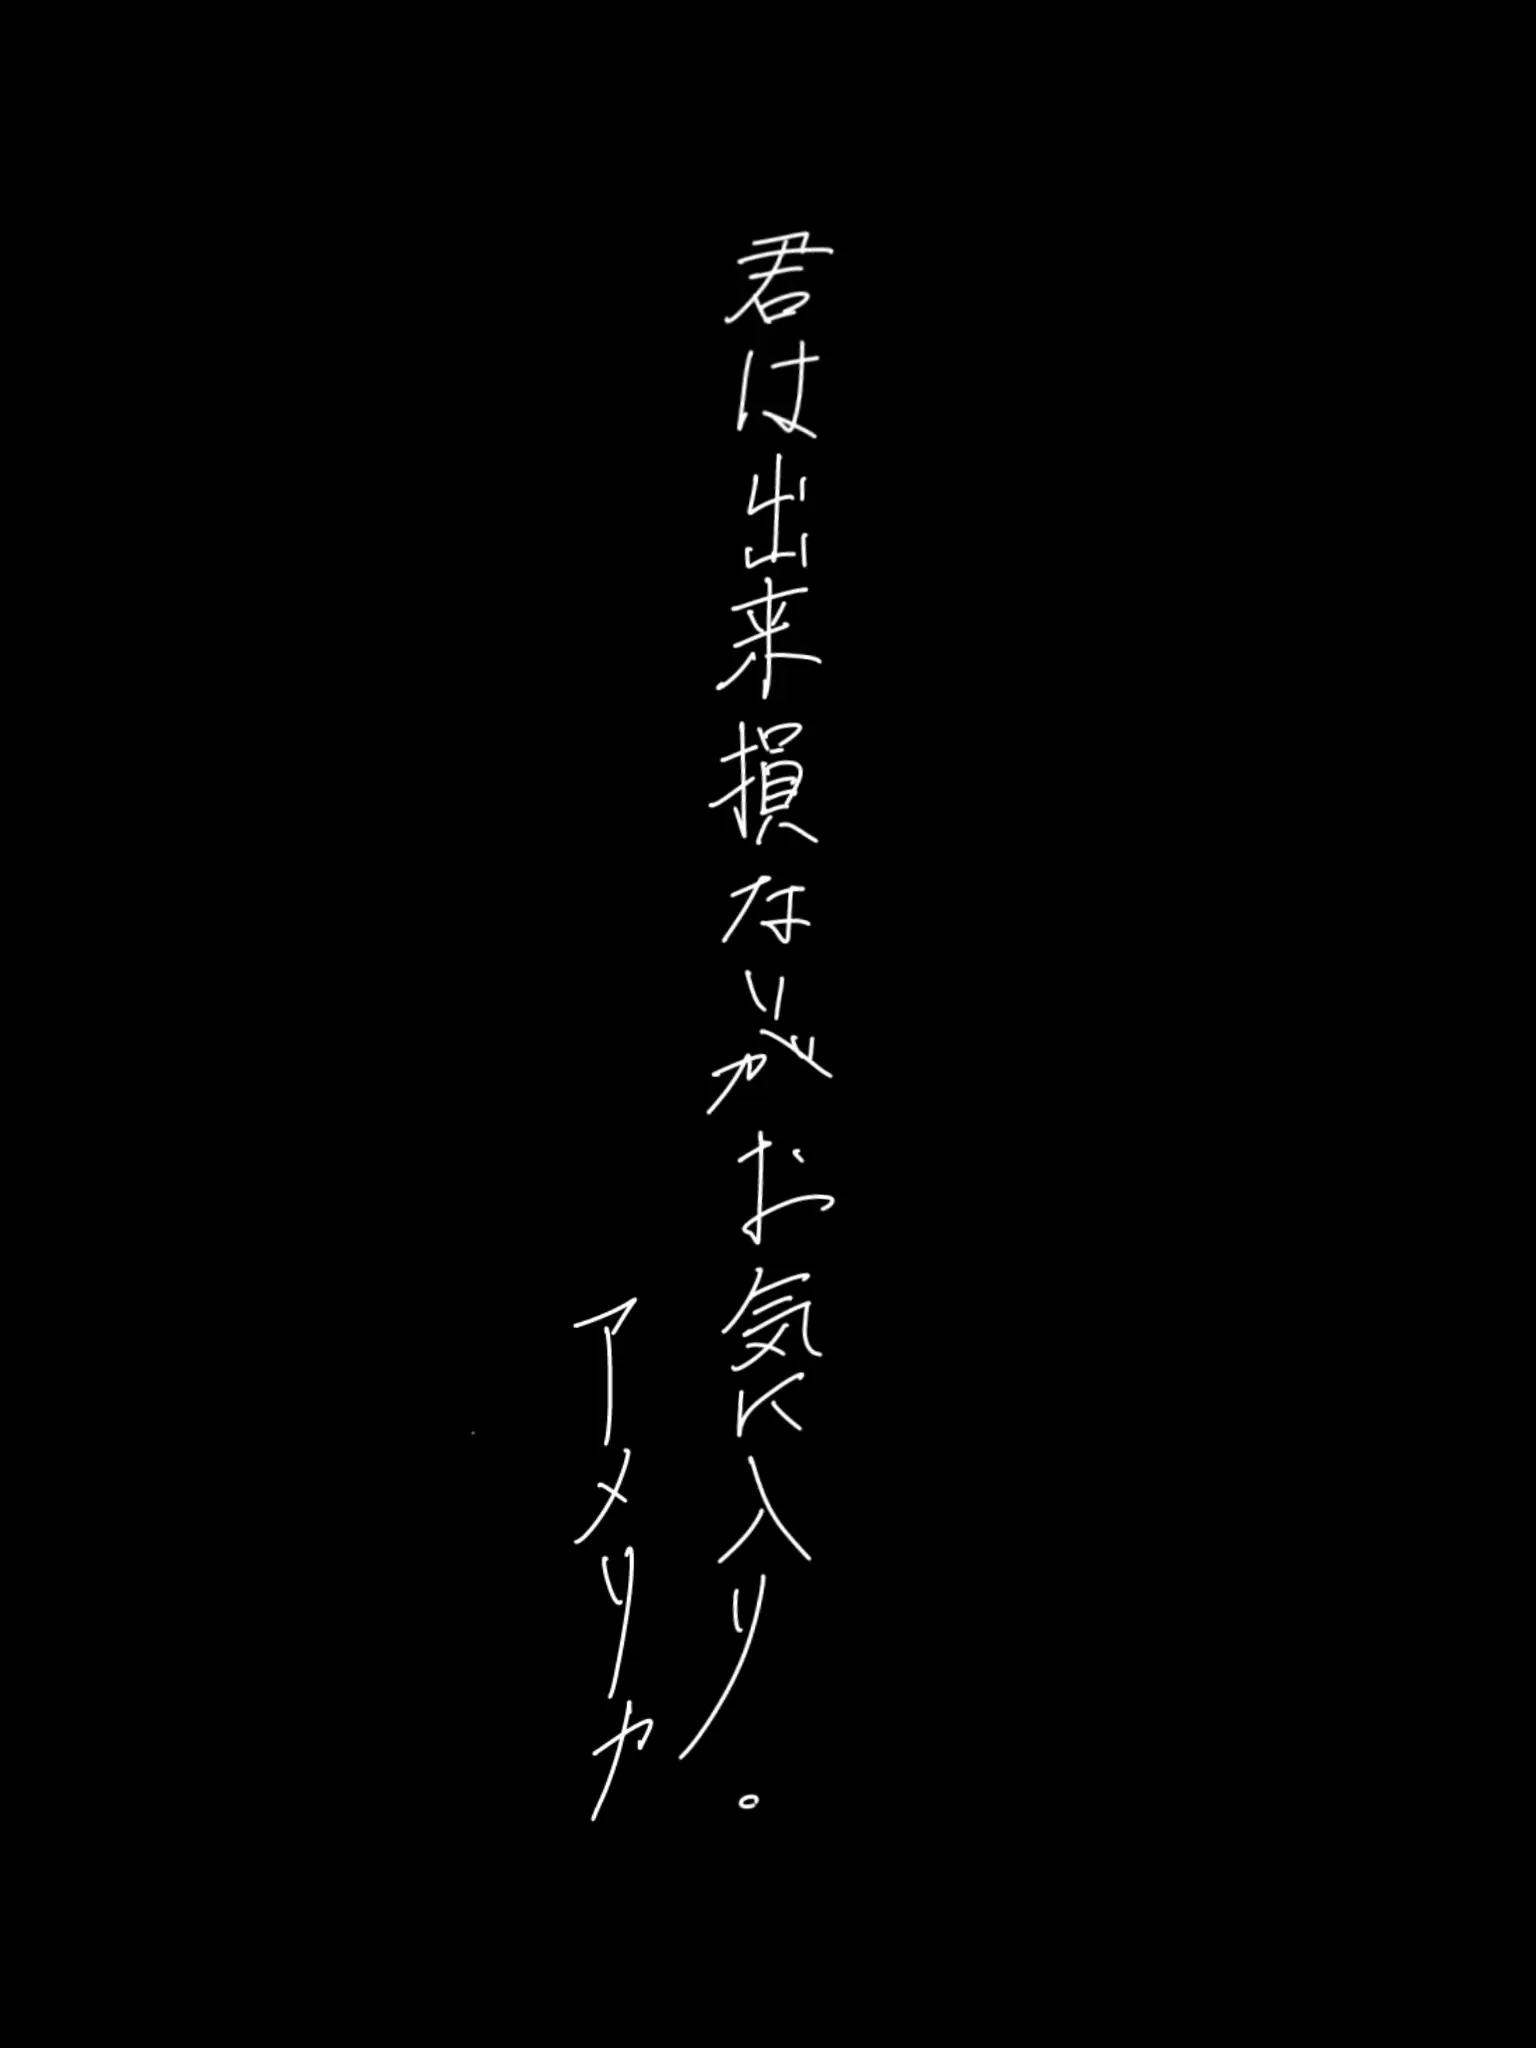 君は出来損ないがお気に入り。
アメリカ